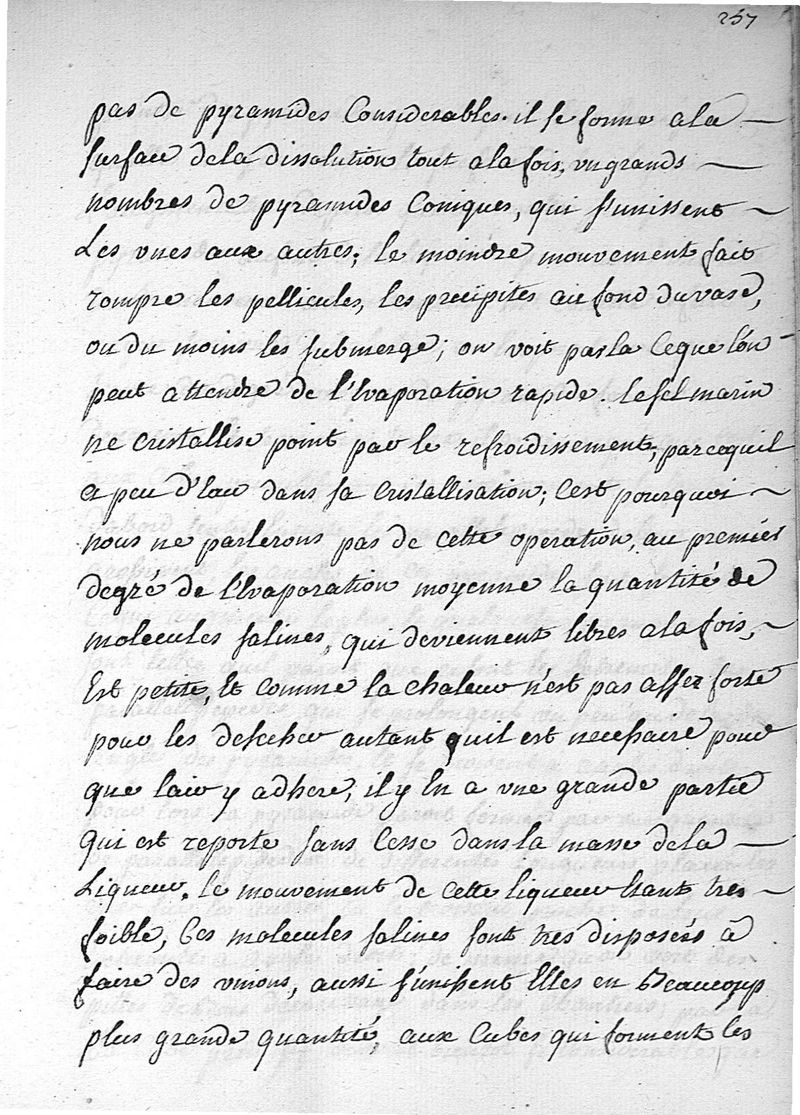 257
pas de pyramides Considerables. il se forme a la
surface dela dissolution tout ala fois, un grands
nombres de pyramides Coniques, qui s'unissent
Les unes aux autres; le moindre mouvement fait
rompre les pellicules, les precipites au fond du vase,
ou du moins les submerge; on voit par la Ceque l'on
peut attendre de l'Evaporation rapide. le sel marin
ne cristallise point par le refroidissement, parcequil
a peu d'Eau dans sa Cristallisation; C'est pourquoi
nous ne parlerons pas de cette operation, au premier
degré de l'Evaporation moyenne la quantité de
molecules salines, qui deviennent libres ala fois,
Est petite, Et comme la chaleur n'est pas assez forte
pour les dessecher autant quil est necessaire pour
que lair y adhere, il y En a une grande partie
qui est reporte sans Cesse dans la masse de la
Liqueur. le mouvement de cette liqueur Etant tres
foible, Ces molecules salines sont tres disposées à
faire des unions, aussi s'unissent Elles en Beaucoup
plus grande quantité, aux Cubes qui forment les